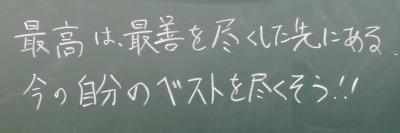 最高は、最善を尽くした先にある.
今の自分のベストを尽くそう!!